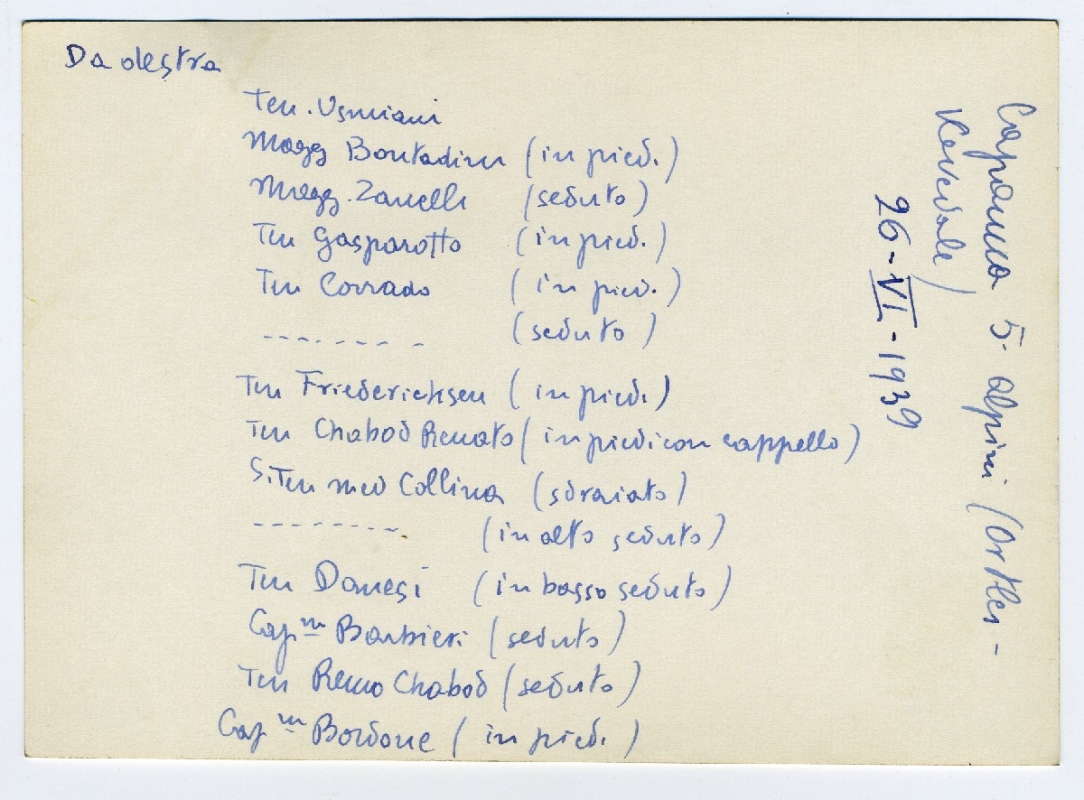 Da destra
Ten. Usmiani
Magg Bontadini (in pied.)
Magg. Zanelli (seduto)
Ten Gasparotto (in pied.)
Ten Corrado (in pied.)
- - - - - - - - (seduto)
Ten Friederichsen (in pied.)
Ten Chabod Renato (in piedi con cappello)
S.Ten med Collina (sdraiato)
- - - - - - - - (in alto seduto)
Ten Danesi (in basso seduto)
Cap.no Barbieri (seduto)
Ten Remo Chabod (seduto)
Cap.no Bordone (in pied.)
Capanna 5° alpini (Ortles -
Kevedale)
26-VI-1939